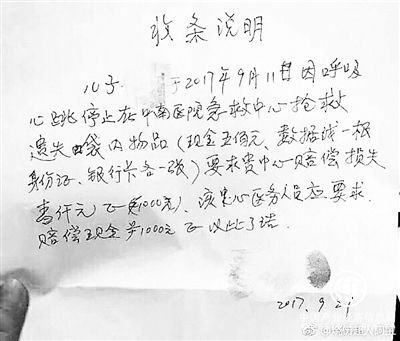 收条说明
儿子 于2017年9月11日因呼吸
心跳停止在中南医院急救中心抢救
遗失口袋内物品(现金五佰元,数据线一根
身份证、银行卡各一张)要求贵中心赔偿损失
壹仟元正(¥1000元)、该中心医务人员应要求
赔偿现金¥1000元正以此了结.
2017.9.21